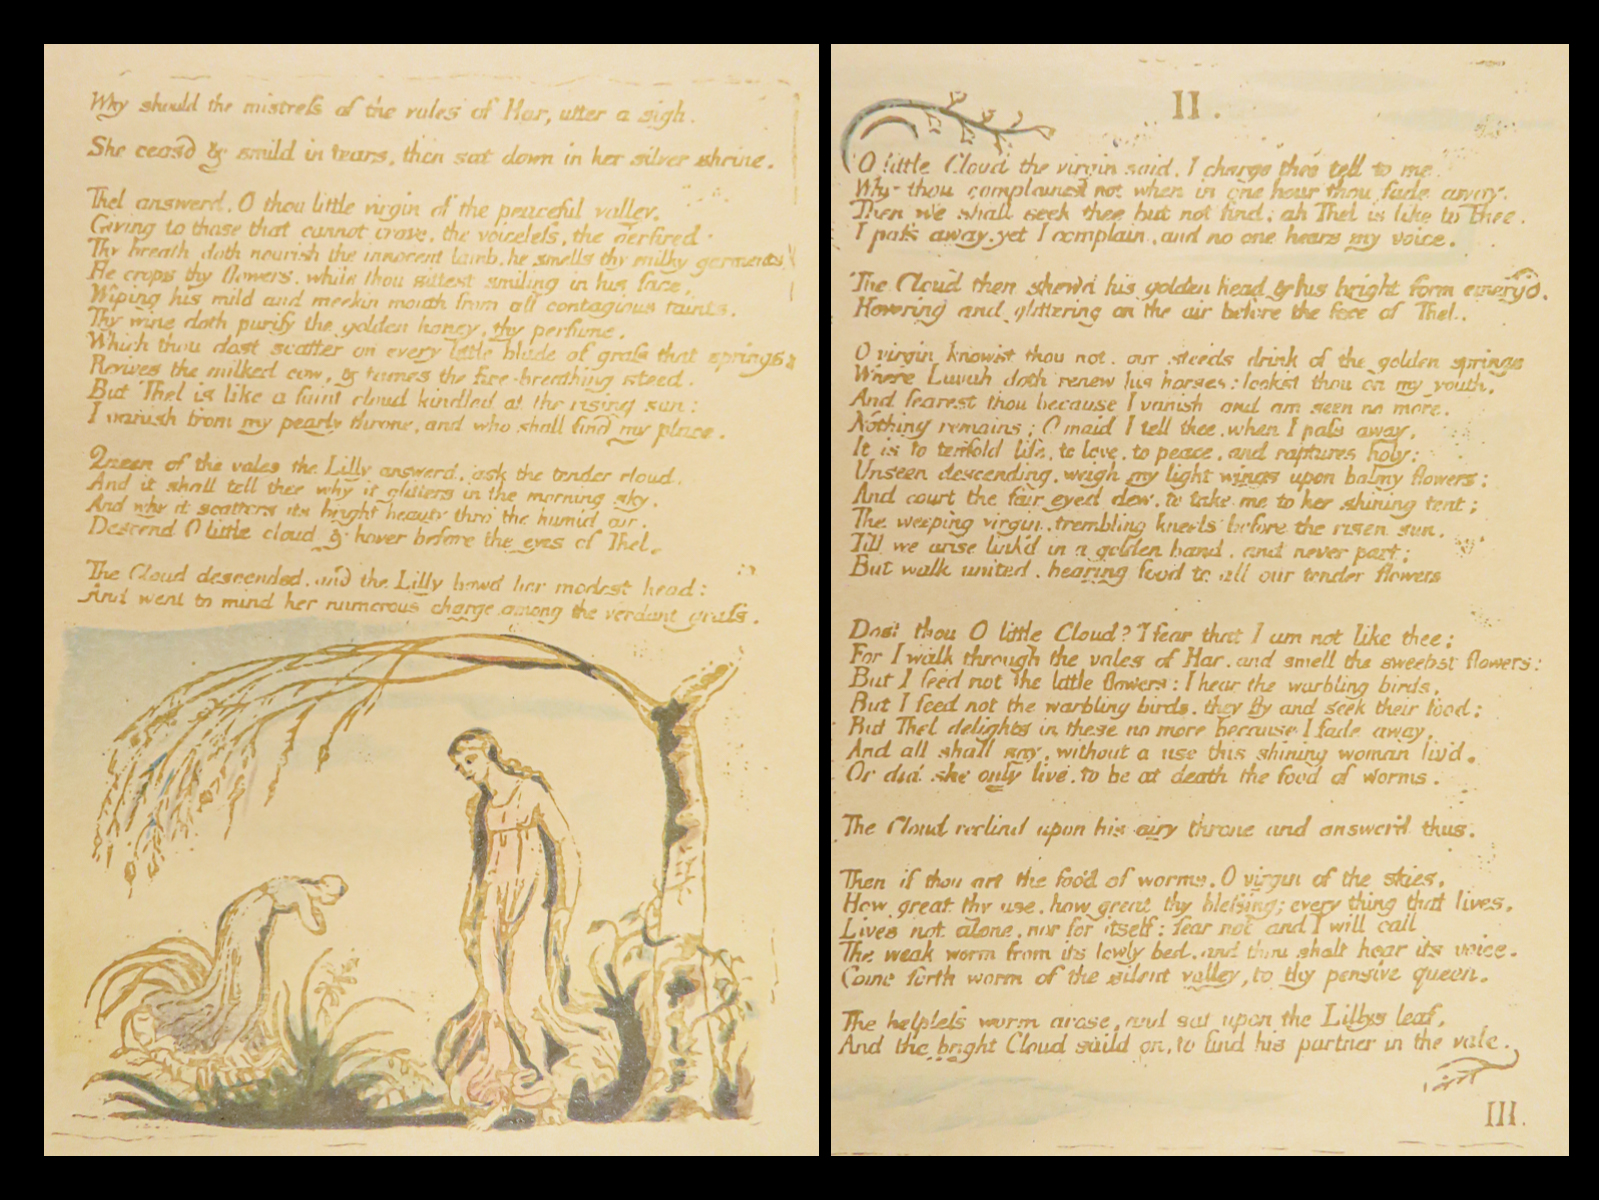 Why should the mistress of the vales of Har, utter a sigh.
She ceasd & smild in tears, then sat down in her silver shrine.
Thel answerd. O thou little virgin of the peaceful valley.
Giving to those that cannot crave, the voiceless, the oerfired.
Thy breath doth nourish the innocent lamb, he smells thy milky garments,
He crops thy flowers, while thou sittest smiling in his face,
Wiping his mild and meekin mouth from all contagious taints.
Thy wine doth purify the golden honey, thy perfume,
Which thou dost scatter on every little blade of grass that springs,
Revives the milked cow, & tames the fire-breathing steed.
But Thel is like a faint cloud kindled at the rising sun:
I vanish from my pearly throne, and who shall find my place.
Queen of the vales the Lilly answerd, ask the tender cloud,
And it shall tell thee why it glitters in the morning sky,
And why it scatters its bright beauty thro' the humid air.
Descend O little cloud & hover before the eyes of Thel.
The Cloud descended, and the Lilly bowd her modest head:
And went to mind her numerous charge among the verdant grass.
II.
O little Cloud the virgin said, I charge thee tell to me
Why thou complainest not when in one hour thou fade away:
Then we shall seek thee but not find; ah Thel is like to Thee.
I pass away, yet I complain, and no one hears my voice.
The Cloud then shew'd his golden head & his bright form emerg'd,
Hovering and glittering on the air before the face of Thel.
O virgin know'st thou not. our steeds drink of the golden springs
Where Luvah doth renew his horses: look'st thou on my youth,
And fearest thou because I vanish and am seen no more.
Nothing remains; O maid I tell thee, when I pass away,
It is to tenfold life, to love, to peace, and raptures holy:
Unseen descending, weigh my light wings upon balmy flowers;
And court the fair eyed dew, to take me to her shining tent;
The weeping virgin, trembling kneels before the risen sun,
Till we arise link'd in a golden band, and never part;
But walk united, bearing food to all our tender flowers
Dost thou O little Cloud? I fear that I am not like thee;
For I walk through the vales of Har, and smell the sweetest flowers:
But I feed not the little flowers: I hear the warbling birds,
But I feed not the warbling birds, they fly and seek their food;
But Thel delights in these no more because I fade away,
And all shall say, without a use this shining woman liv'd,
Or did she only live, to be at death the food of worms.
The Cloud reclind upon his airy throne and answer'd thus.
Then if thou art the food of worms, O virgin of the skies,
How great thy use, how great thy blessing; every thing that lives,
Lives not alone, nor for itself: fear not and I will call
The weak worm from its lowly bed, and thou shalt hear its voice.
Come forth worm of the silent valley, to thy pensive queen.
The helpless worm arose, and sat upon the Lillys leaf,
And the bright Cloud saild on, to find his partner in the vale.
III.